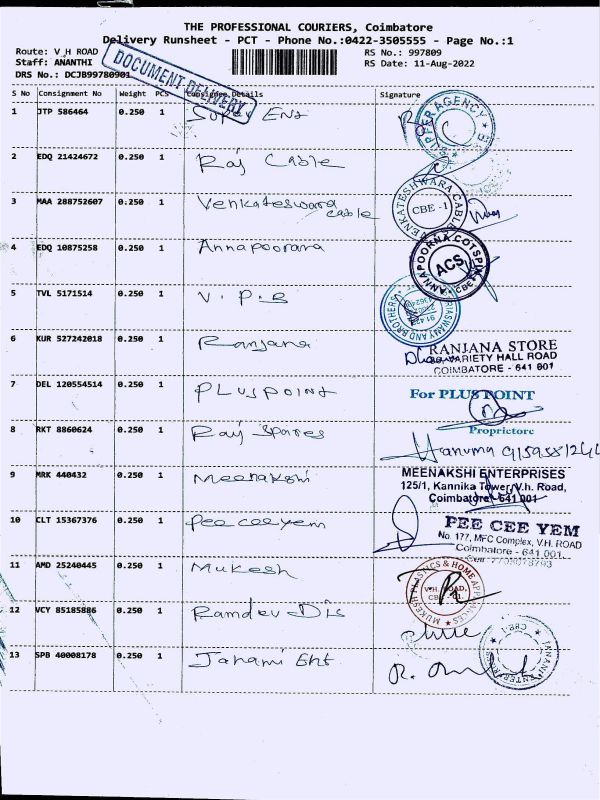 THE PROFESSIONAL COURIERS, Coimbatore
Delivery Runsheet - PCT - Phone No.:0422-3505555 - Page No.:1
Route: V H ROAD
RS No.: 997809
Staff: ANANTHI
RS Date: 11-Aug-2022
DRS No.: DCJB99780901
DOCUMENT DELIVERY
S No Consignment No Weight PCS Consignee Details Signature
1 JTP 586464 0.250 1 Super Ent
2 EDQ 21424672 0.250 1 Raj Cable
3 MAA 288752607 0.250 1 Venkateswara
cable
VENKATESHWARA CABLE
CBE - 1
4 EDQ 10875258 0.250 1 Annapoorana
ANNAPOORNA COTSPIN
ACS
CBE
5 TVL 5171514 0.250 1 V.P.B
AND BROTHERS
6 KUR 527242018 0.250 1 Ranjana
RANJANA STORE
VARIETY HALL ROAD
COIMBATORE - 641 001
7 DEL 120554514 0.250 1 Pluspoint
For PLUS POINT
Proprietore
8 RKT 8860624 0.250 1 Raj Spares
Hanuma
9 MRK 440432 0.250 1 Meenakshi
MEENAKSHI ENTERPRISES
125/1, Kannika Tower, V.h. Road,
Coimbatore - 641 001
10 CLT 15367376 0.250 1 Pee cee yem
PEE CEE YEM
No. 177, MFC Complex, V.H. ROAD
Coimbatore - 641 001.
11 AMD 25240445 0.250 1 Mukesh
MUKESH PLASTICS & HOME APPLIANCES
V.H. ROAD,
12 VCY 85185886 0.250 1 Ramdev Dis
13 SPB 40008178 0.250 1 Janani Ent